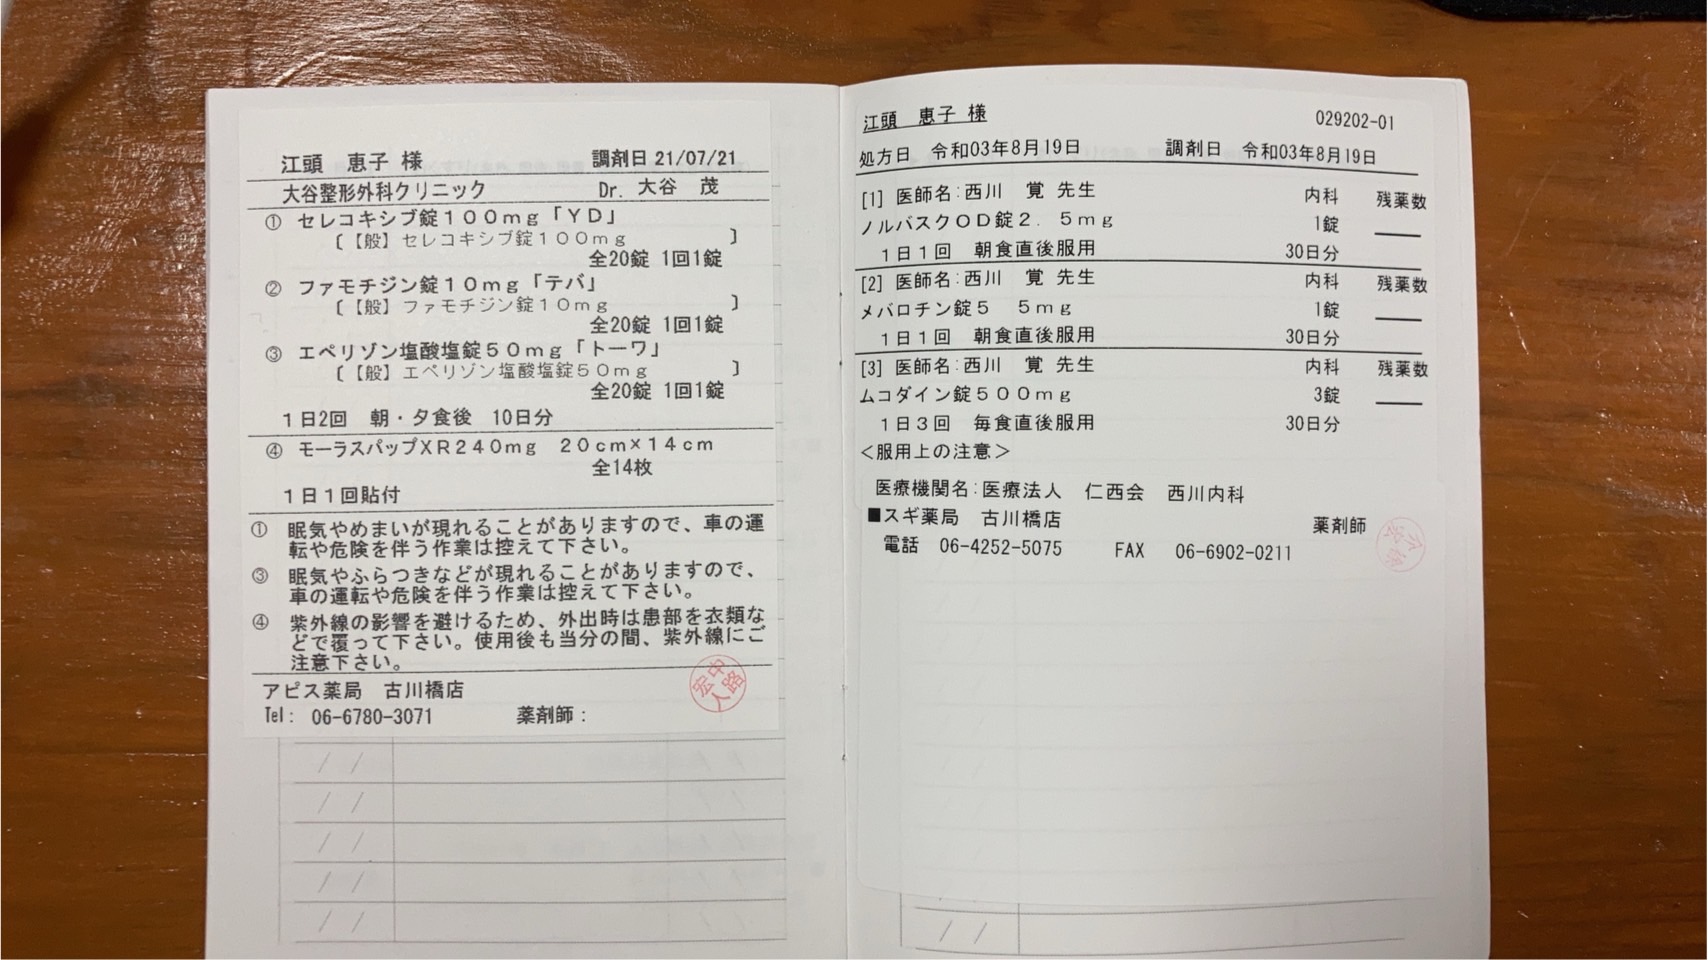 江頭　恵子 様　調剤日 21/07/21
大谷整形外科クリニック　Dr. 大谷　茂
① セレコキシブ錠１００ｍｇ「ＹＤ」
〔【般】セレコキシブ錠１００ｍｇ　〕
全20錠 1回1錠
② ファモチジン錠１０ｍｇ「テバ」
〔【般】ファモチジン錠１０ｍｇ　〕
全20錠 1回1錠
③ エペリゾン塩酸塩錠５０ｍｇ「トーワ」
〔【般】エペリゾン塩酸塩錠５０ｍｇ　〕
全20錠 1回1錠
１日2回　朝・夕食後　10日分
④ モーラスパップＸＲ２４０ｍｇ　２０ｃｍ×１４ｃｍ
全14枚
１日１回貼付
① 眠気やめまいが現れることがありますので、車の運
転や危険を伴う作業は控えて下さい。
③ 眠気やふらつきなどが現れることがありますので、
車の運転や危険を伴う作業は控えて下さい。
④ 紫外線の影響を避けるため、外出時は患部を衣類な
どで覆って下さい。使用後も当分の間、紫外線にご
注意下さい。
アピス薬局　古川橋店
Tel： 06-6780-3071　薬剤師：
中路
宏人
江頭　恵子 様　029202-01
処方日　令和03年8月19日　調剤日　令和03年8月19日
[1] 医師名:西川　覚 先生　内科　残薬数
ノルバスクＯＤ錠２．５ｍｇ　1錠
１日１回　朝食直後服用　30日分
[2] 医師名:西川　覚 先生　内科　残薬数
メバロチン錠５　５ｍｇ　1錠
１日１回　朝食直後服用　30日分
[3] 医師名:西川　覚 先生　内科　残薬数
ムコダイン錠５００ｍｇ　3錠
１日３回　毎食直後服用　30日分
＜服用上の注意＞
医療機関名:医療法人　仁西会　西川内科
■スギ薬局　古川橋店　薬剤師
電話　06-4252-5075　FAX　06-6902-0211